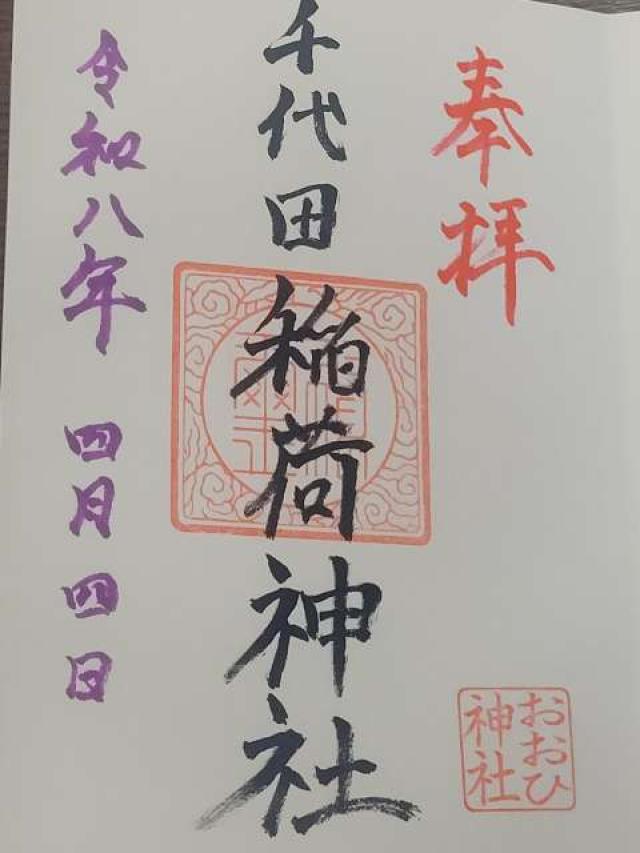 奉拝
千代田稲荷神社
令和八年 四月四日
おおひ
神社